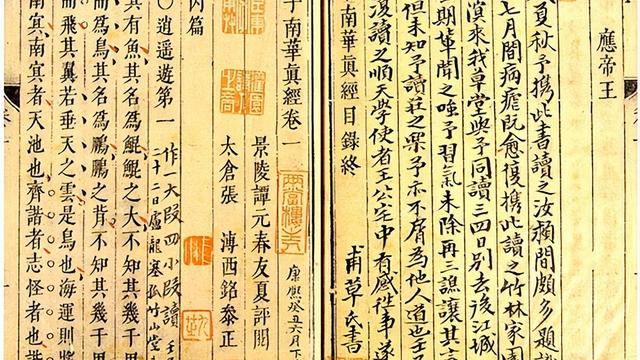 應帝王
夏秋予攜此書讀之汝潁間頗多題
七月間病瘧既愈復攜此讀之竹林家園
來我草堂與予同讀三四日別去後江城
期聞之強予習氣未除再三譙讓其言
但未知予讀莊之樂予亦不屑為他人道也壬
復讀之順天學使者王公宅中有感往事遂
南華眞經目錄終
甫草氏書
康熙癸丑六月下
子南華眞經卷一
景陵譚元春友夏評閱
太倉張溥西銘叅正
內篇
逍遙遊第一
作一大段四小段讀
二十二日盧龍塞孤竹山堂
其有魚其名為鯤鯤之大不知其幾千里
而為鳥其名為鵬鵬之背不知其幾千里
而飛其翼若垂天之雲是鳥也海運則將
南冥南冥者天池也齊諧者志怪者也